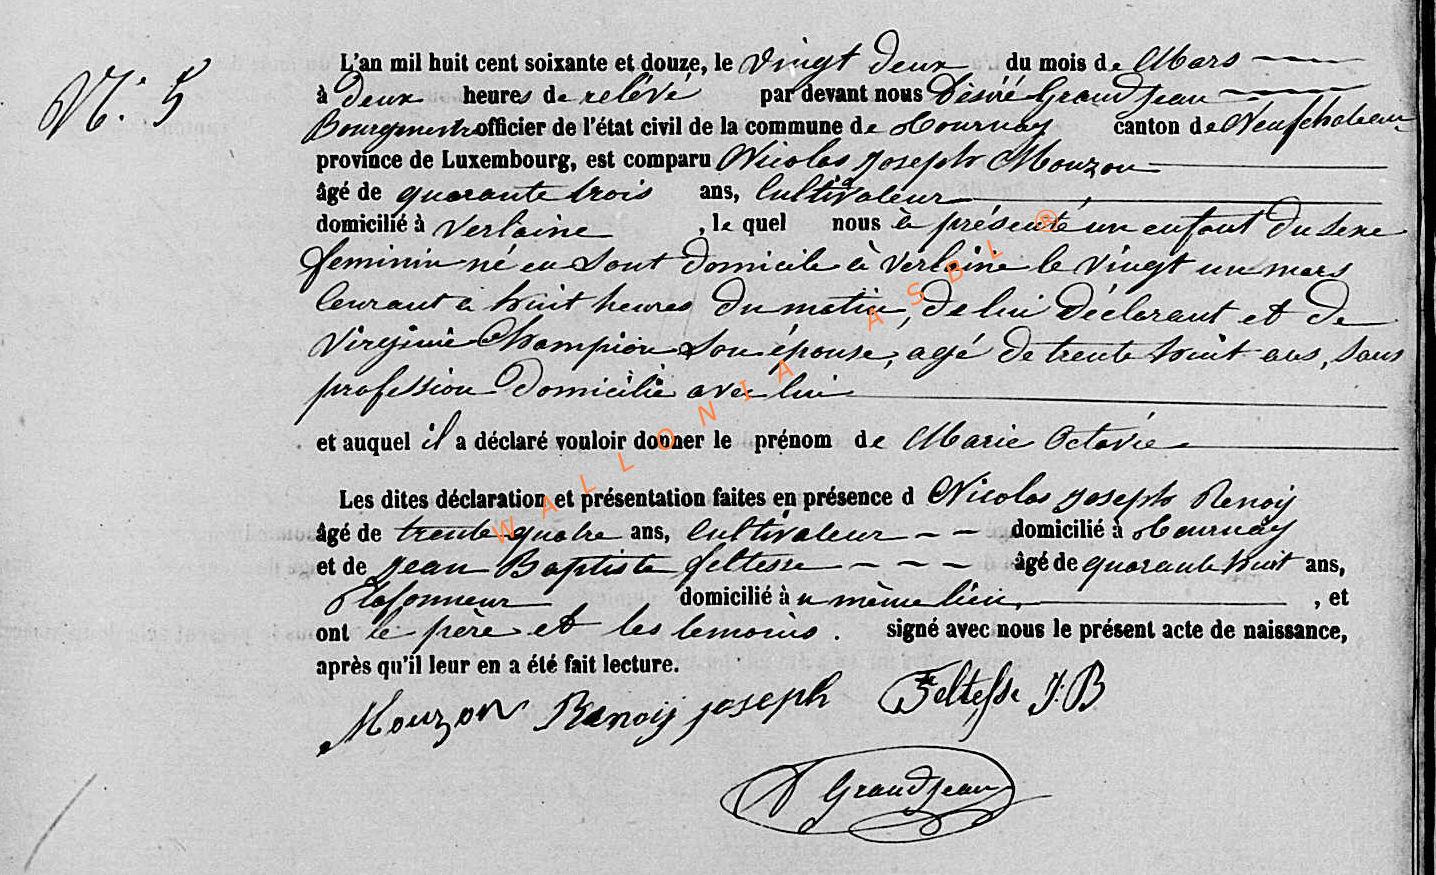 N.º 5
L'an mil huit cent soixante et douze, le vingt deux du mois de Mars
à deux heures de relévé par devant nous Désiré Grandjean
Bourgmestre officier de l'état civil de la commune de Tournay canton de Neufchateau
province de Luxembourg, est comparu Nicolas Joseph Mouzon
âgé de quarante trois ans, Cultivateur
domicilié à Verlaine, le quel nous à présenté un enfant du sexe
feminin né en sont domicile à Verlaine le vingt un mars
courant à huit heures du matin, de lui déclarant et de
Virginie Champion son épouse, agé de trente huit ans, sans
profession domicilié avec lui
et auquel il a déclaré vouloir donner le prénom de Marie Octavie
Les dites déclaration et présentation faites en présence d Nicolas Joseph Renoy
âgé de trente quatre ans, Cultivateur - - domicilié à Tournay
et de Jean Baptiste Feltesse - - - - âgé de quarante huit ans,
Plafonneur domicilié à u même lieu, , et
ont le père et les temoins. signé avec nous le présent acte de naissance,
après qu'il leur en a été fait lecture.
Mouzon Renoy joseph Feltesse J.B
D Grandjean
WALLONIA ASBL ®